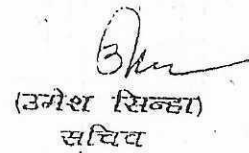 (उमेश सिन्हा)
सचिव